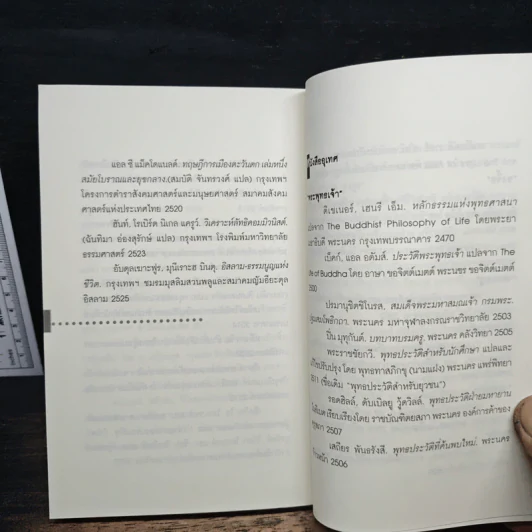 แอล ซี แม็คโดแนลด์. ทฤษฎีการเมืองตะวันตก เล่มหนึ่ง
สมัยโบราณและยุคกลาง.(สมบัติ จันทรวงศ์ แปล) กรุงเทพฯ
โครงการตำราสังคมศาสตร์และมนุษยศาสตร์ สมาคมสังคม
ศาสตร์แห่งประเทศไทย 2520
ฮันท์, โรเบิร์ต นิเกล แครูว์. วิเคราะห์ลัทธิคอมมิวนิสต์.
(ฉันทิมา อ่องสุรักษ์ แปล) กรุงเทพฯ โรงพิมพ์มหาวิทยาลัย
ธรรมศาสตร์ 2523
อับดุลเบาะฟูร, มุนีเราะฮ บินตุ. อิสลาม-ธรรมนูญแห่ง
ชีวิต. กรุงเทพฯ ชมรมมุสลิมสวนพลูและสมาคมญัมอียะตุล
อิสลาม 2525
หนังสืออุเทศ
พระพุทธเจ้า"
ดิเชเนอร์, เฮนรี เอ็ม. หลักธรรมแห่งพุทธศาสนา
แปลจาก The Buddhist Philosophy of Life โดยพระยา
พระนคร กรุงเทพบรรณาคาร 2470
เบ็คก์, แอล อดัมส์. ประวัติพระพุทธเจ้า แปลจาก The
Life of Buddha โดย อาษา ขอจิตต์เมตต์ พระนคร ขอจิตต์เมตต์
2500
ปรมานุชิตชิโนรส, สมเด็จพระมหาสมณเจ้า กรมพระ.
ปฐมสมโพธิกถา. พระนคร มหาจุฬาลงกรณราชวิทยาลัย 2503
ปิ่น มุทุกันต์. บทบาทบรมครู. พระนคร คลังวิทยา 2505
พระราชชัยกวี. พุทธประวัติสำหรับนักศึกษา แปลและ
แก้ไขปรับปรุง โดย พุทธทาสภิกขุ (นามแฝง) พระนคร แพร่พิทยา
(ชื่อเดิม "พุทธประวัติสำหรับยุวชน")
รอคฮิลล์, ดับเบิลยู วู้ดวิลล์. พุทธประวัติฝ่ายมหายาน
เรียบเรียงโดย ราชบัณฑิตยสภา พระนคร องค์การค้าของ
คุรุสภา 2507
เสถียร พันธรังสี. พุทธประวัติที่ค้นพบใหม่. พระนคร
2506